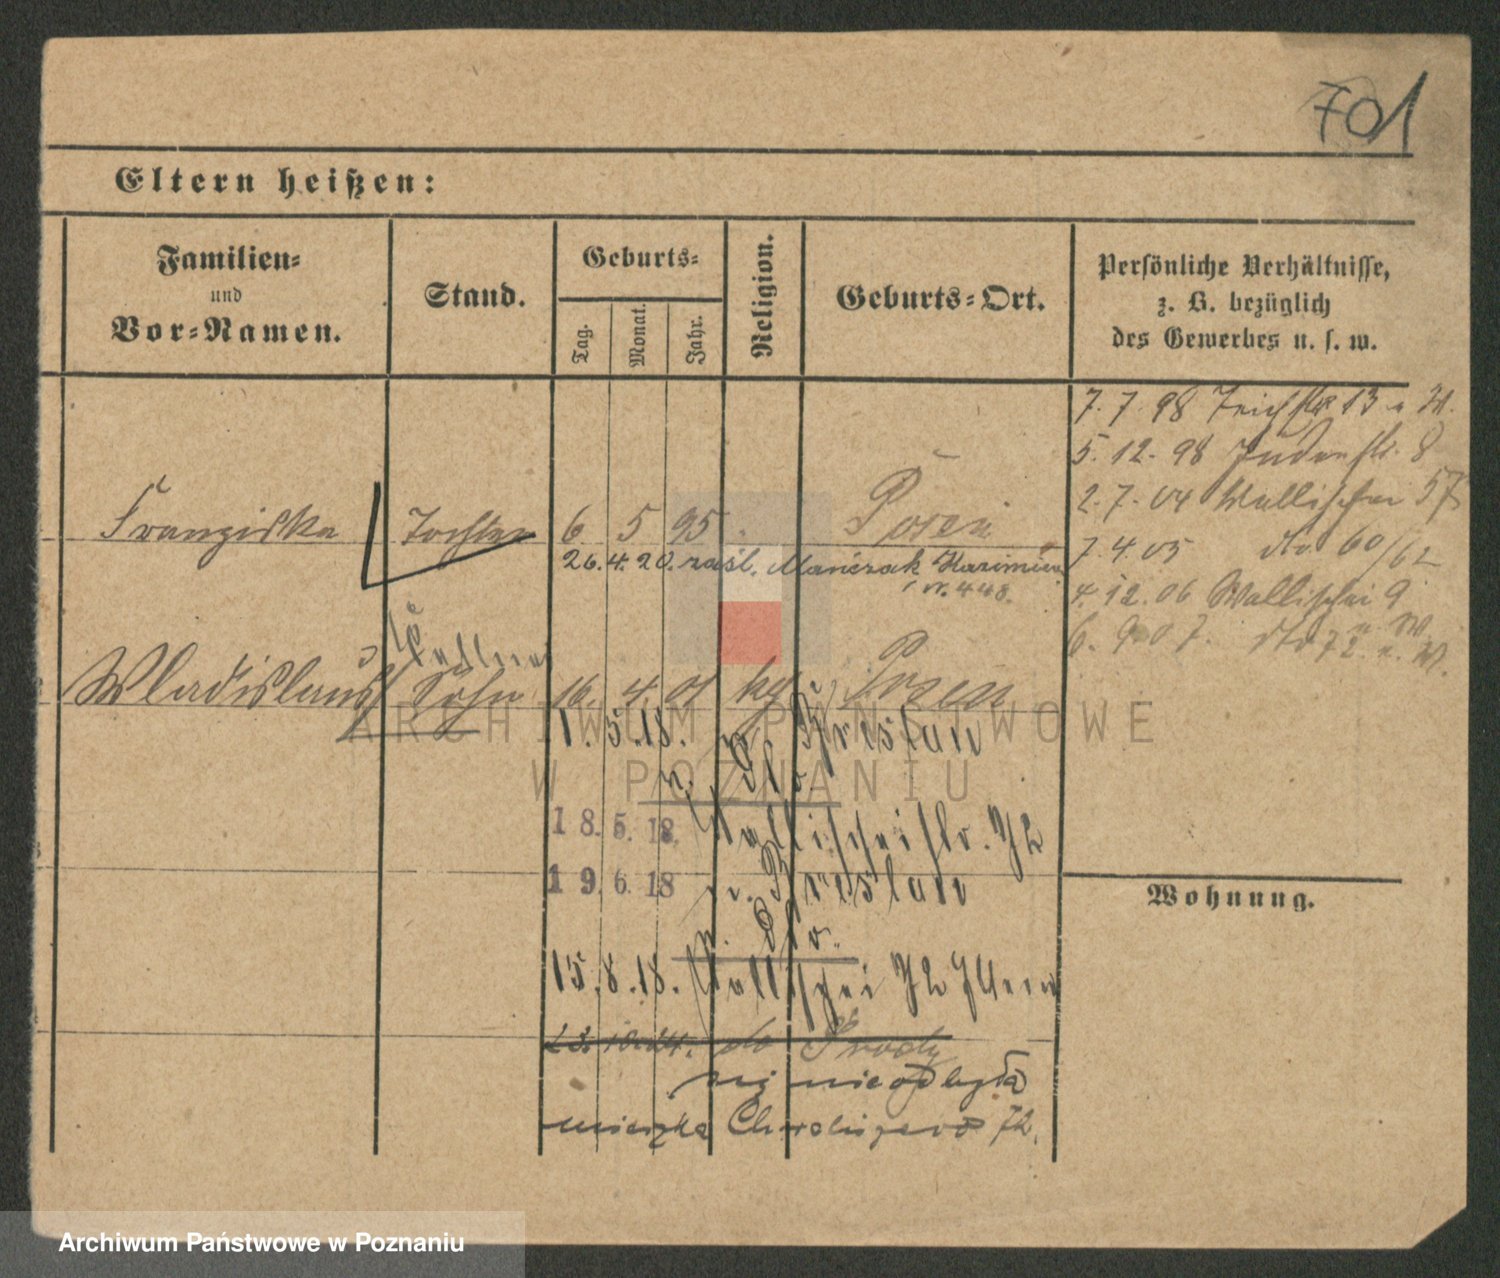 701
Eltern heißen:
Familien-
und
Vor-Namen.
Stand.
Geburts-
Tag.
Monat.
Jahr.
Religion.
Geburts-Ort.
Persönliche Verhältnisse,
z. B. bezüglich
des Gewerbes u. s. w.
7. 7. 98 Teichstr 13
5. 12. 98 Judenstr. 8
2. 7. 04 Wallischei 57
7. 4. 05 dto 60/62
4. 12. 06 Wallischei 9
6. 9. 07. dto 72
Franziska Tochter 6 5 95 Posen
26. 4. 20. zaśl. Mańczak Kazimierz
nr. 448.
Wladislaus Sohn 16. 4. 01 Posen
1. 5. 18. n. Breslau
18. 5. 18. Wallischeistr. 72
19. 6. 18 n. Breslau
15. 8. 18. Wallischei 72
23. 10. 24. do Środy
nie odbyła
mieszka Chwaliszewo 72.
Wohnung.
ARCHIWUM PAŃSTWOWE
W POZNANIU
Archiwum Państwowe w Poznaniu